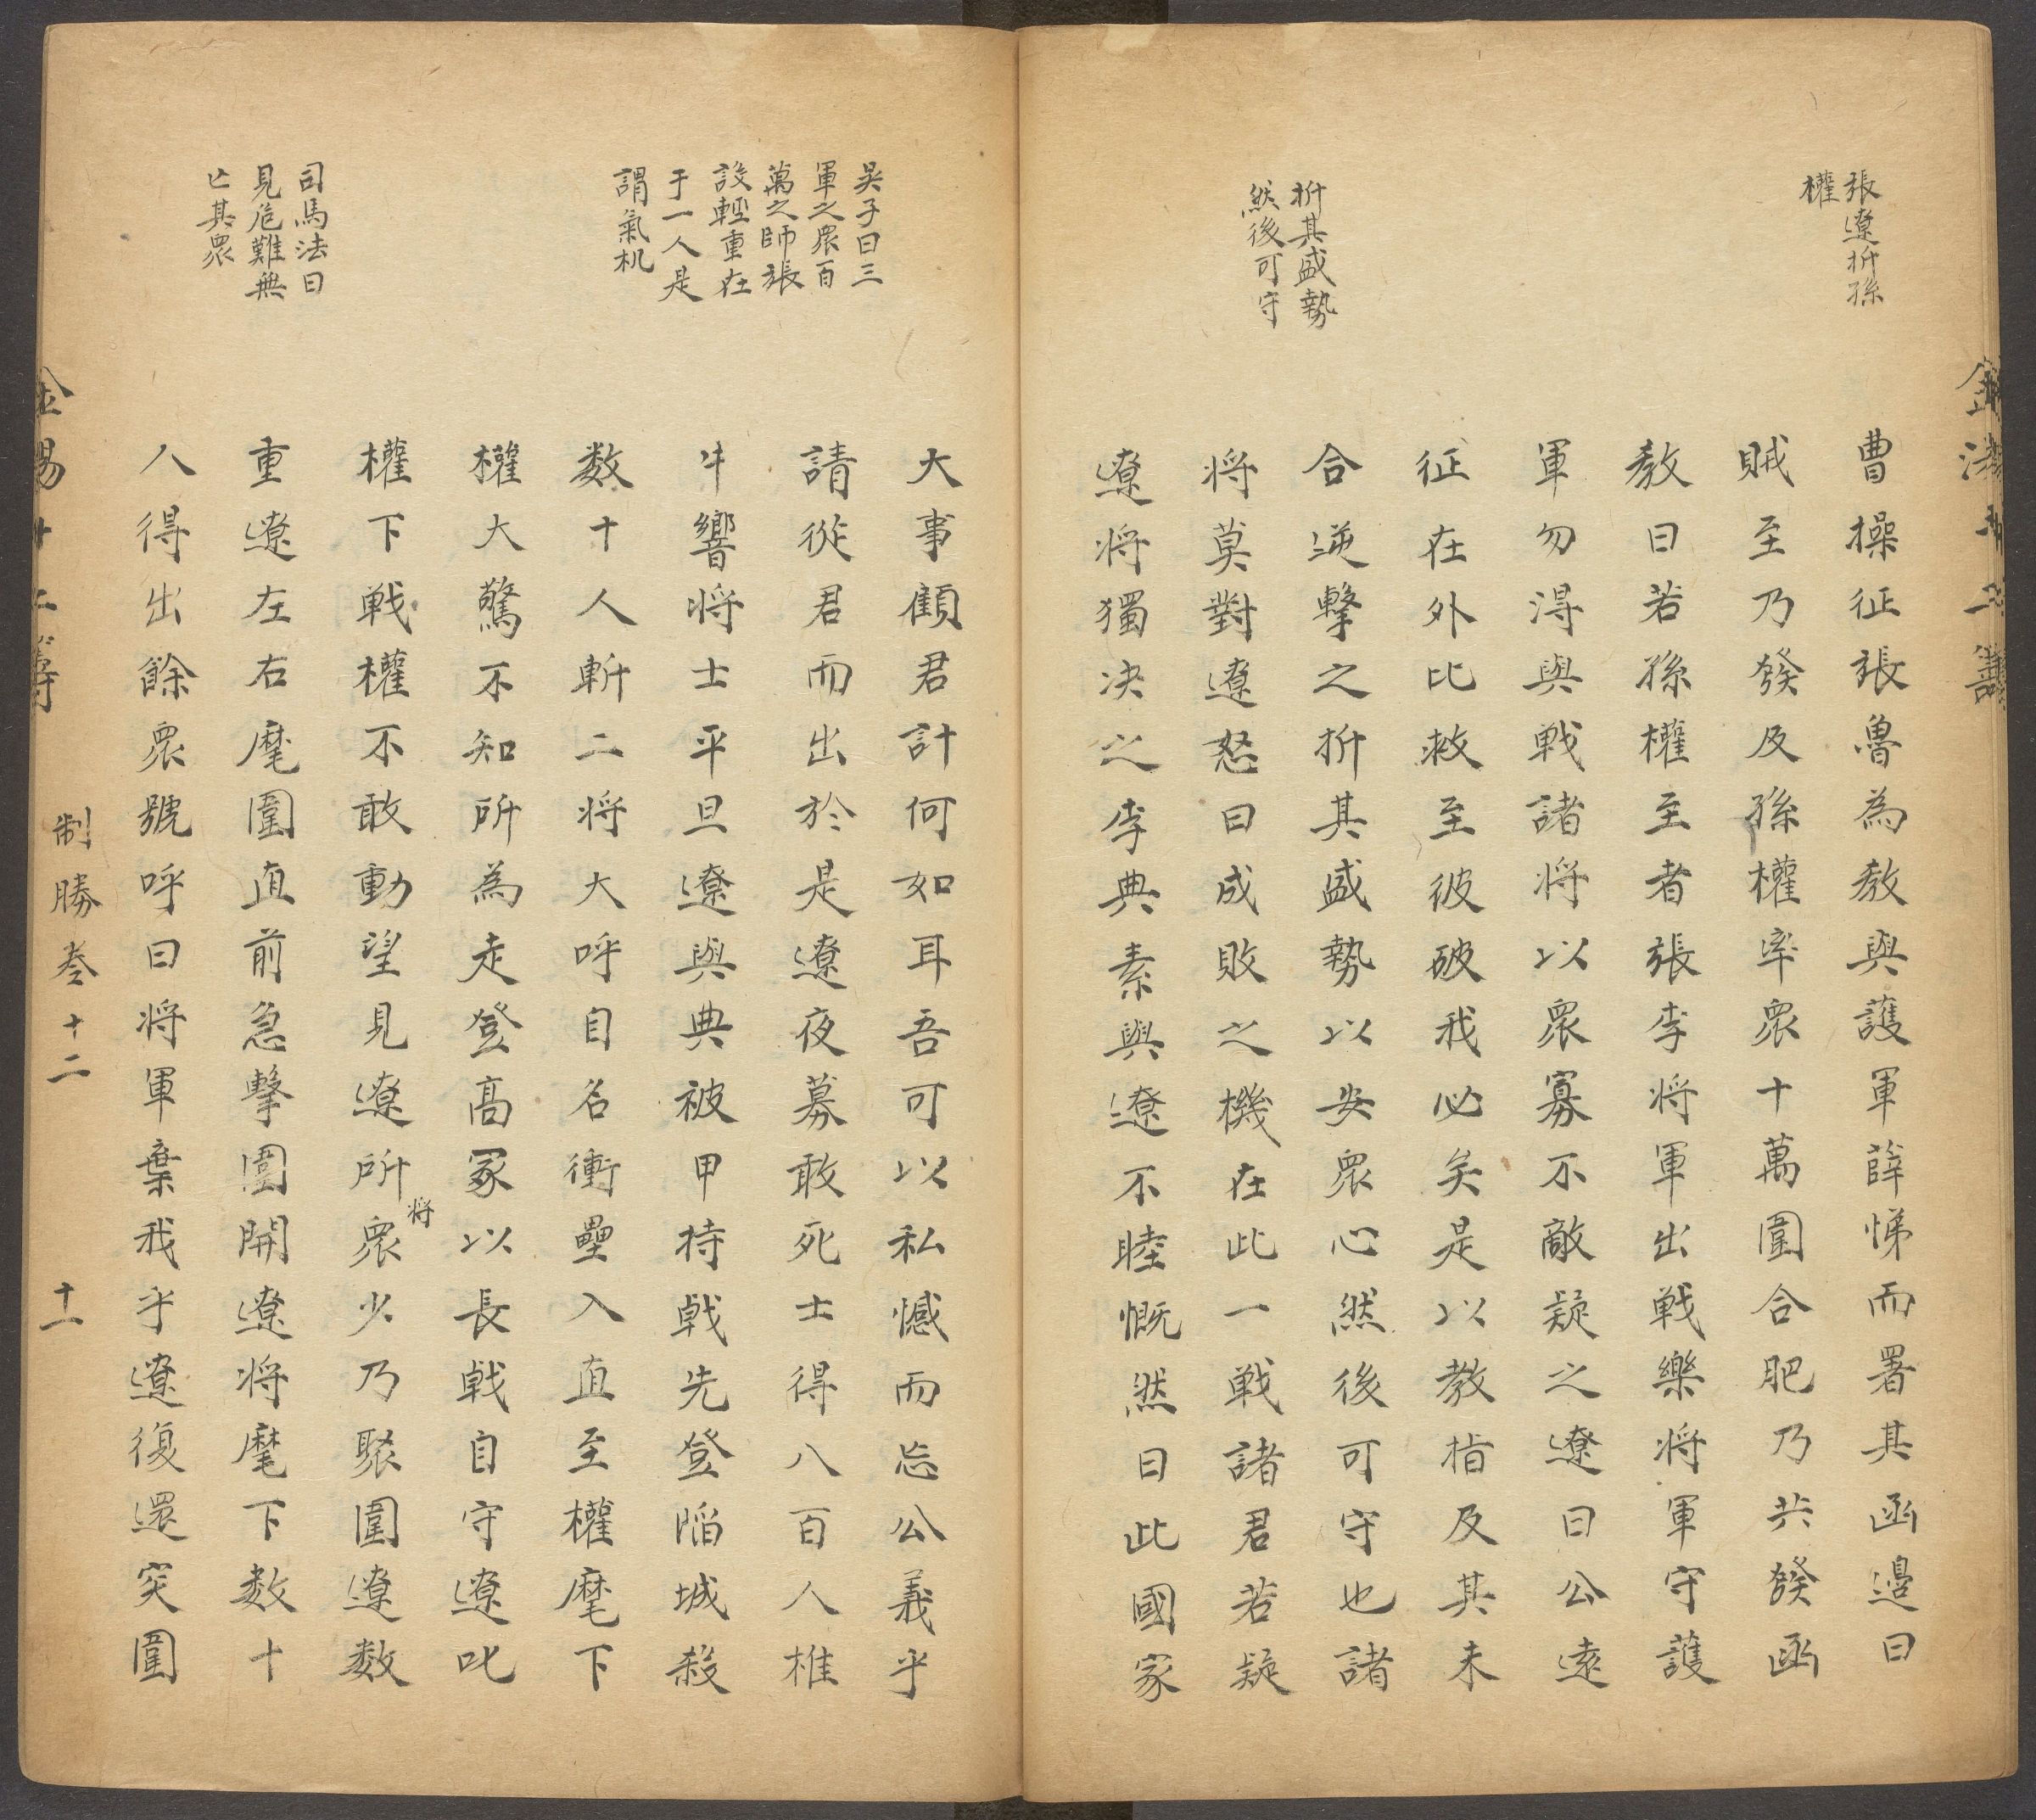 張遼折孫
權
曹操征張魯為教與護軍薛悌而署其函邊曰
賊至乃發及孫權率眾十萬圍合肥乃共發函
教曰若孫權至者張李將軍出戰樂將軍守護
軍勿得與戰諸將以眾寡不敵疑之遼曰公遠
征在外比救至彼破我必矣是以教指及其未
折其盛勢
然後可守
合逆擊之折其盛勢以安眾心然後可守也諸
將莫對遼怒曰成敗之機在此一戰諸君若疑
遼將獨决之李典素與遼不睦慨然曰此國家
大事顧君計何如耳吾可以私憾而忘公義乎
吳子曰三
軍之眾百
萬之師張
設輕重在
于一人是
謂氣机
請從君而出於是遼夜募敢死士得八百人椎
牛響將士平旦遼與典被甲持戟先登陷城殺
数十人斬二將大呼自名衝壘入直至權麾下
權大驚不知所為走登高冢以長戟自守遼叱
權下戰權不敢動望見遼所將眾少乃聚圍遼数
司馬法曰
見危難無
亡其眾
重遼左右麾圍直前急擊圍開遼將麾下数十
人得出餘眾號呼曰將軍棄我乎遼復還突圍
制勝卷十二
十一